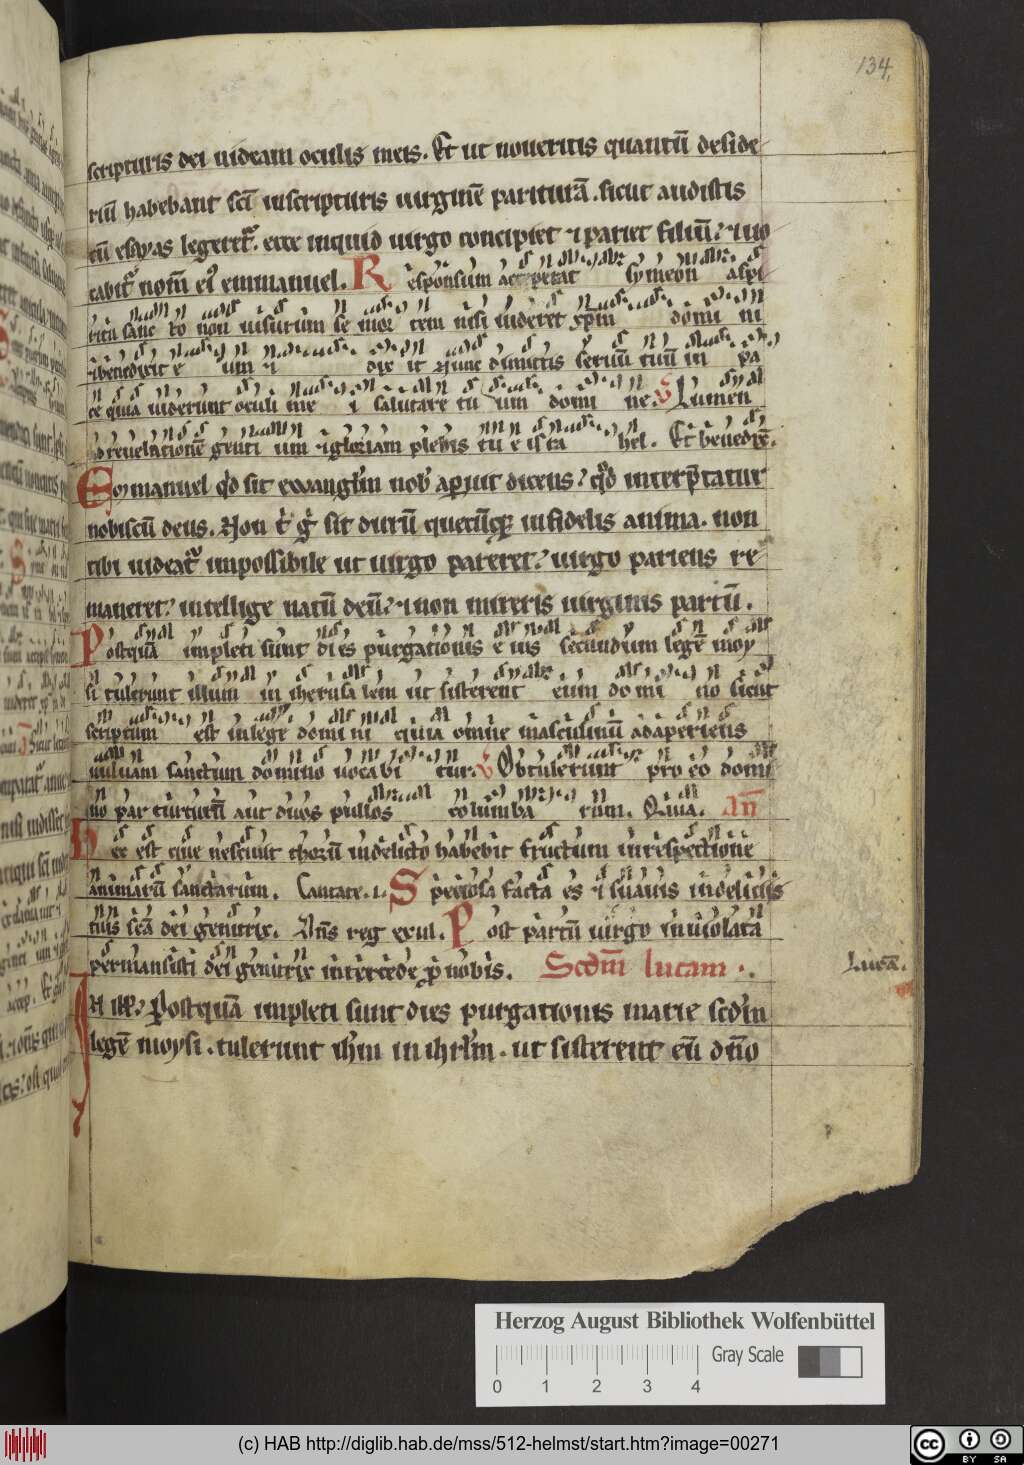 134
scripturis dei uideam oculis meis. Et ut noueritis quantū deside
riū habebant scī inscripturis uirginē pariturā. sicut audistis
cū esayas legeret᷑. ecce inquid uirgo concipiet ⁊ pariet filiū? ⁊ uo
cabit᷑ nom̄ eiꝰ emmanuel. R esponsum acceperat symeon aspi
ritu sanc to non uisurum se mor tem nisi uideret xp̄m domi ni
⁊ benedixit e um ⁊ dix it Nunc dimittis seruū tuū in pa
ce quia uiderunt oculi me i salutare tu um domi ne. V Lumen
ad reuelationē genti um ⁊ gloriam plebis tu e isra hel. Et benedix̄.
Emmanuel qd̓ sit ewangl̓m nob̓ apuit dicens? qd̓ interp̄tatur
nobiscū deus. Non t̓ g̓ sit durū quecūq; infidelis anima. non
tibi uideat᷑ impossibile ut uirgo pareret? uirgo pariens re
maneret? intellige natū deū? ⁊ non miteris uirginis partū.
Postquā impleti sunt dies purgationis e ius secundum legē moy
si tulerunt illum in iherusa lem ut sisterent eum do mi no sicut
scriptum est in lege domi ni quia omne masculinū adaperiens
uuluam sanctum domino uocabi tur. V Obtulerunt pro eo domi
no par turturū aut duos pullos columba rum. Quia. An̄
Hec est que nesciuit thorū in delicto habebit fructum in respectione
animarū sanctarum. Cantate. i. Speciosa facta es ⁊ suauis in deliciis
tuis scā dei genitrix. Dn̄s reg exul. Post partū uirgo inuiolata
permansisti dei genitrix intercede ꝓ nobis. Scdm̄ lucam.
Lucā.
In ill̓. Postquā impleti sunt dies purgationis marie scdm̄
legē moysi. tulerunt ih̄m in ihrl̓m. ut sisterent eū dn̄o
Herzog August Bibliothek Wolfenbüttel
Gray Scale
0 1 2 3 4
(c) HAB http://diglib.hab.de/mss/512-helmst/start.htm?image=00271
cc BY SA